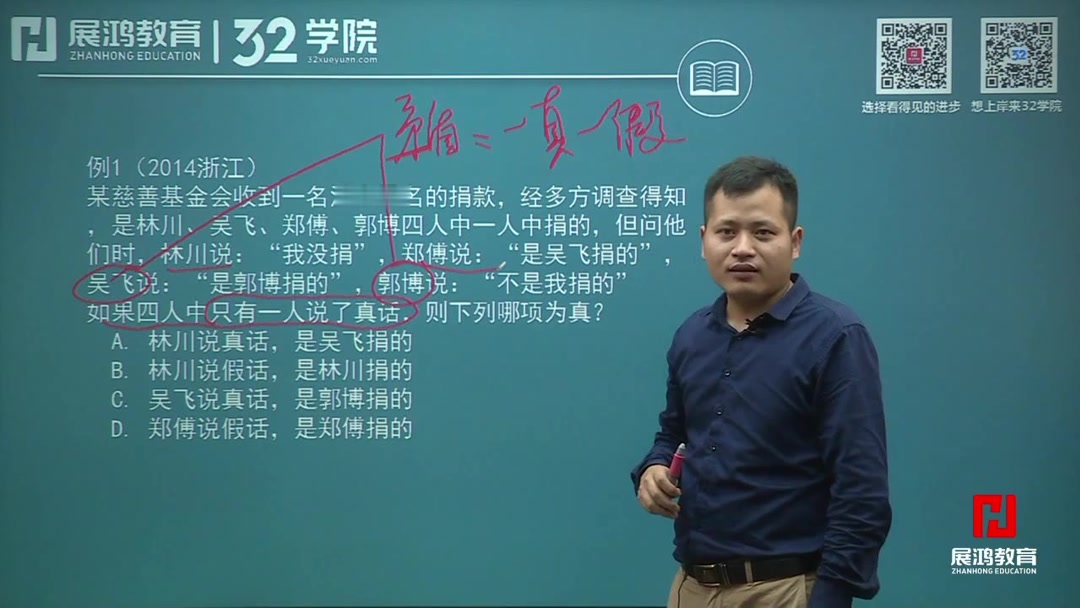 展鸿教育 32学院
ZHANHONG EDUCATION 32xueyuan.com
选择看得见的进步 想上岸来32学院
矛盾=一真一假
例1（2014浙江）
某慈善基金会收到一名 名的捐款，经多方调查得知
，是林川、吴飞、郑傅、郭博四人中一人中捐的，但问他
们时，林川说：“我没捐”，郑傅说：“是吴飞捐的”，
吴飞说：“是郭博捐的”，郭博说：“不是我捐的”
如果四人中只有一人说了真话. 则下列哪项为真？
A. 林川说真话，是吴飞捐的
B. 林川说假话，是林川捐的
C. 吴飞说真话，是郭博捐的
D. 郑傅说假话，是郑傅捐的
展鸿教育
ZHANHONG EDUCATION